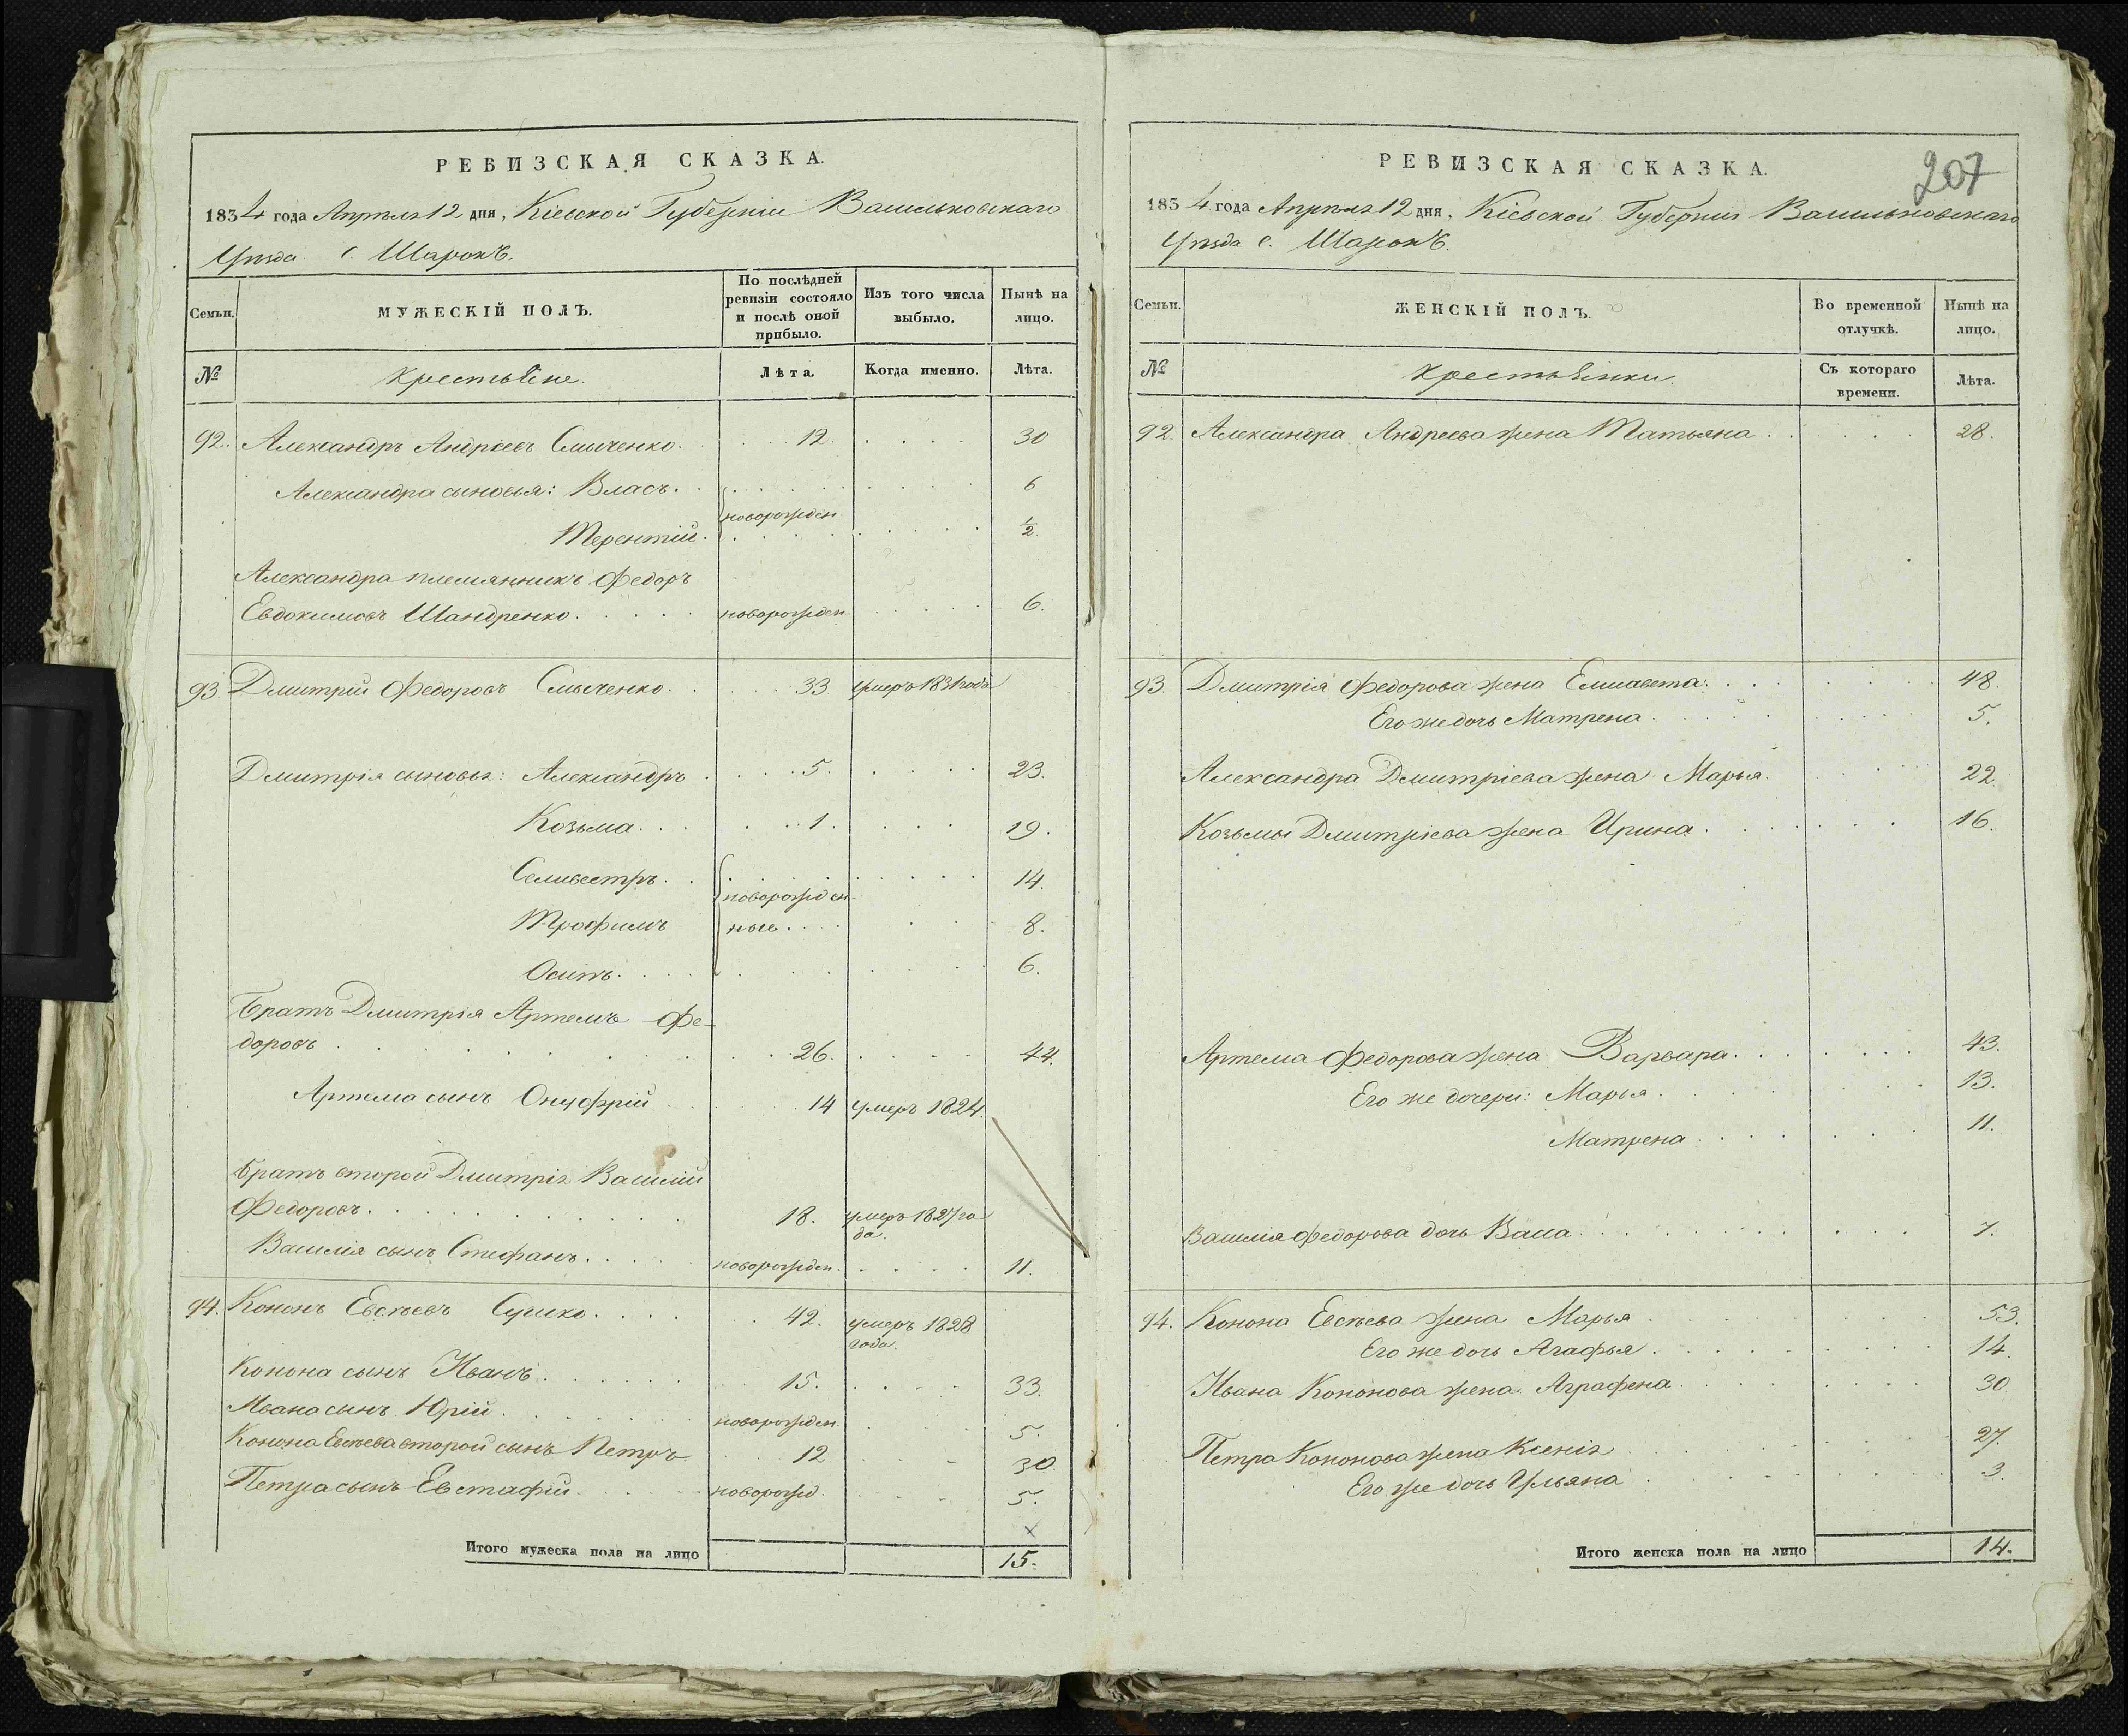 РЕВИЗСКАЯ СКАЗКА.
1834 года Апрѣля 12 дня, Кіевской Губерніи Васильковскаго
Уѣзда с. Шарокъ.
Семьи.
МУЖЕСКІЙ ПОЛЪ.
По послѣдней ревизіи состояло и послѣ оной прибыло.
Изъ того числа выбыло.
Нынѣ на лицо.
№
Крестьяне.
Лѣта.
Когда именно.
Лѣта.
92. Александръ Андреевъ Смыченко. 12. 30
Александра сыновья: Власъ. 6
новорожден
Терентій. ½
Александра племянникъ Федоръ
Евдокимовъ Шандренко. новорожден 6.
93 Дмитрій Федоровъ Смыченко. 33 умеръ 1831 года
Дмитрія сыновья: Александръ 5. 23.
Козьма. 1. 19.
Селивестръ. 14.
новорожден
Трофимъ ные. 8.
Осипъ. 6.
Братъ Дмитрія Артемъ Фе-
доровъ 26. 44.
Артема сынъ Онуфрій 14 умеръ 1824.
Братъ второй Дмитрія Василій
Федоровъ. 18. умеръ 1827 го
да.
Василія сынъ Стефанъ. новорожден. 11.
94. Кононъ Евсѣевъ Сушко. 42. умеръ 1828
года.
Конона сынъ Иванъ. 15. 33.
Ивана сынъ Юрій. новорожден. 5.
Конона Евсѣева второй сынъ Петръ 12 30.
Петра сынъ Евстафій. новорожд. 5.
Итого мужеска пола на лицо 15.
207
РЕВИЗСКАЯ СКАЗКА.
1834 года Апрѣля 12 дня, Кіевской Губерніи Васильковскаго
Уѣзда с. Шарокъ.
Семьи.
ЖЕНСКІЙ ПОЛЪ.
Во временной отлучкѣ.
Нынѣ на лицо.
№
Крестьянки.
Съ котораго времени.
Лѣта.
92. Александра Андреева жена Татьяна. 28.
93. Дмитрія Федорова жена Елисавета. 48.
Его же дочь Матрена. 5.
Александра Дмитріева жена Марья. 22.
Козьмы Дмитріева жена Ирина. 16.
Артема Федорова жена Варвара. 43.
Его же дочери: Марья. 13.
Матрена. 11.
Василія Федорова дочь Васа 7.
94. Конона Евсѣева жена Марья 53.
Его же дочь Агафья. 14.
Ивана Кононова жена Аграфена. 30
Петра Кононова жена Ксенія 27.
Его же дочь Ульяна 3.
Итого женска пола на лицо 14.